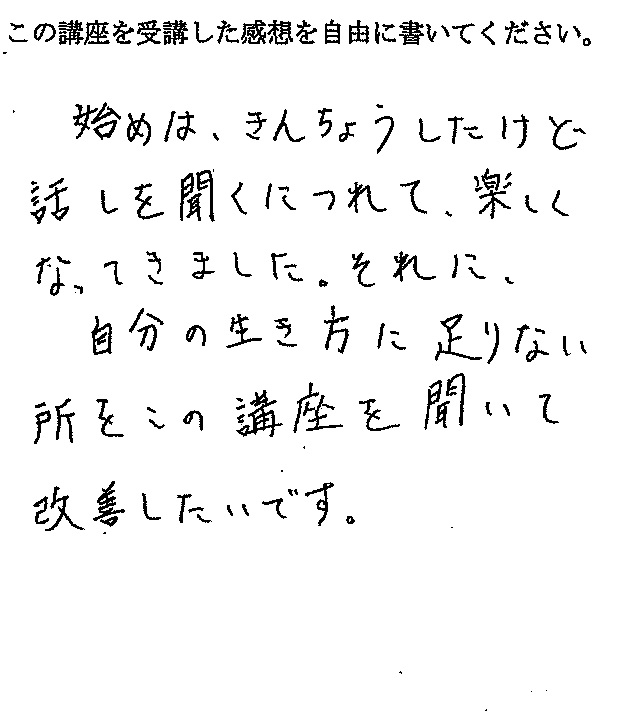 この講座を受講した感想を自由に書いてください。
始めは、きんちょうしたけど
話しを聞くにつれて、楽しく
なってきました。それに、
自分の生き方に足りない
所をこの講座を聞いて
改善したいです。